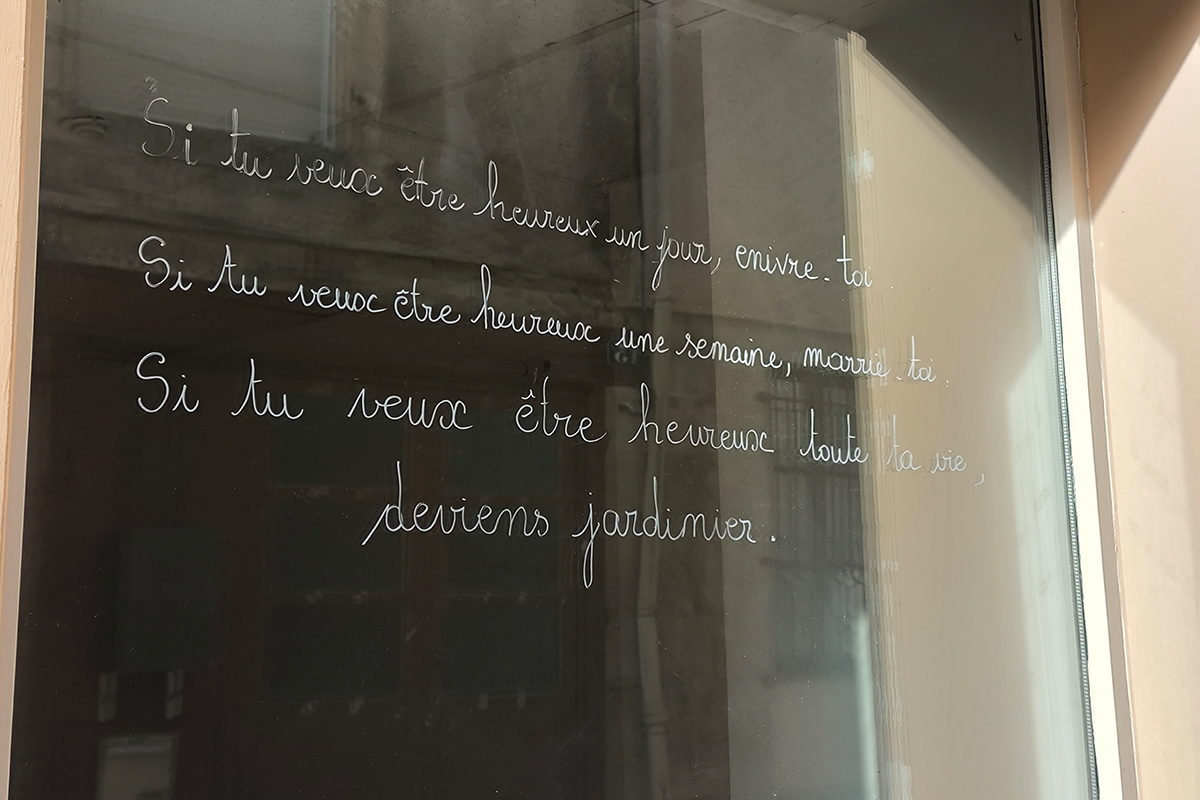 "Si tu veux être heureux un jour, enivre-toi.
Si tu veux être heureux une semaine, marrie-toi.
Si tu veux être heureux toute ta vie,
deviens jardinier.